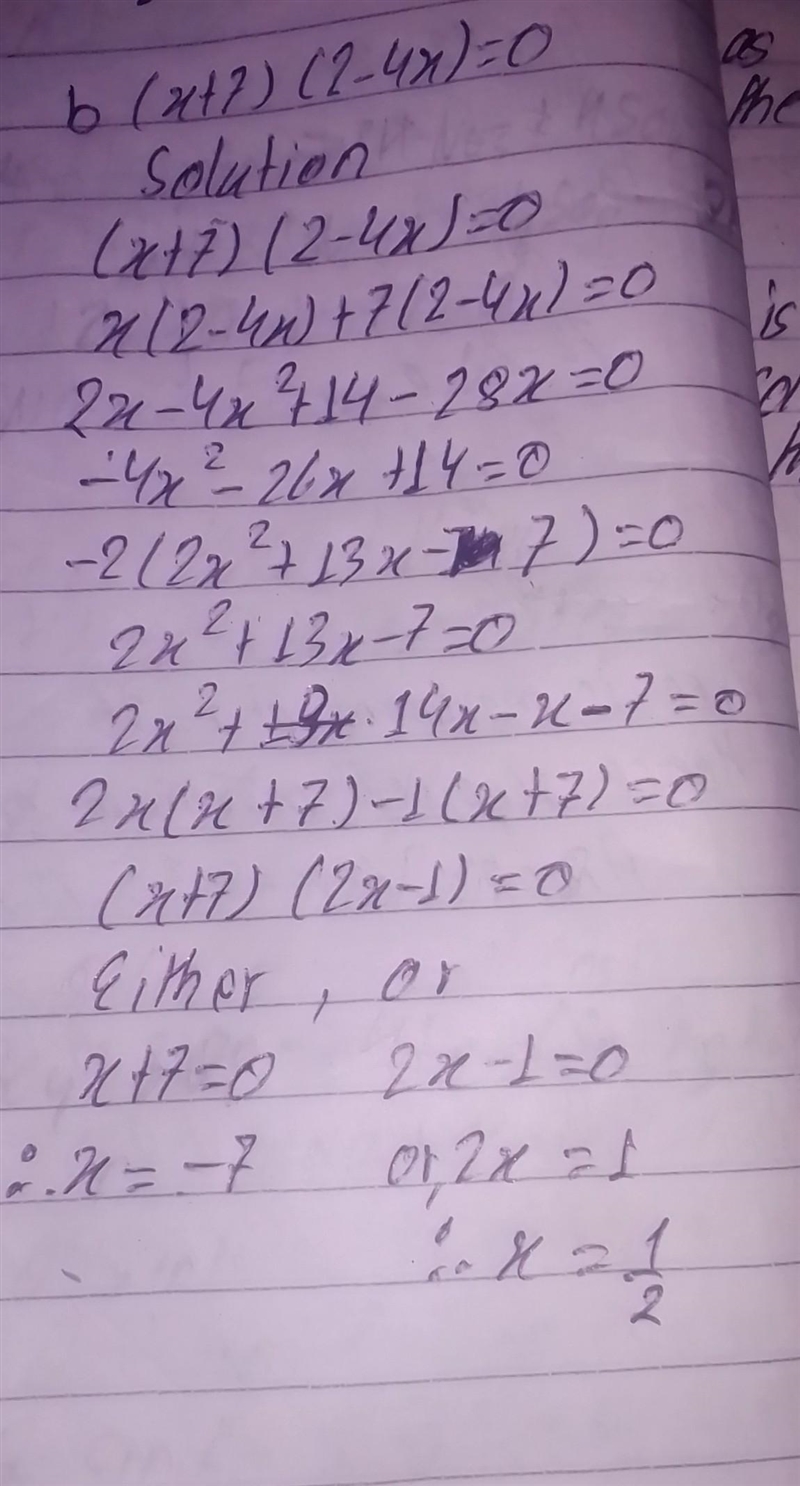 b (x+7) (2-4x)=0
Solution
(x+7) (2-4x)=0
x(2-4x)+7(2-4x)=0
2x-4x²+14-28x=0
-4x²-26x+14=0
-2(2x²+13x-7)=0
2x²+13x-7=0
2x²+14x-x-7=0
2x(x+7)-1(x+7)=0
(x+7) (2x-1)=0
Either, or
x+7=0 2x-1=0
∴x=-7 or, 2x=1
∴x=1/2
as
the
is